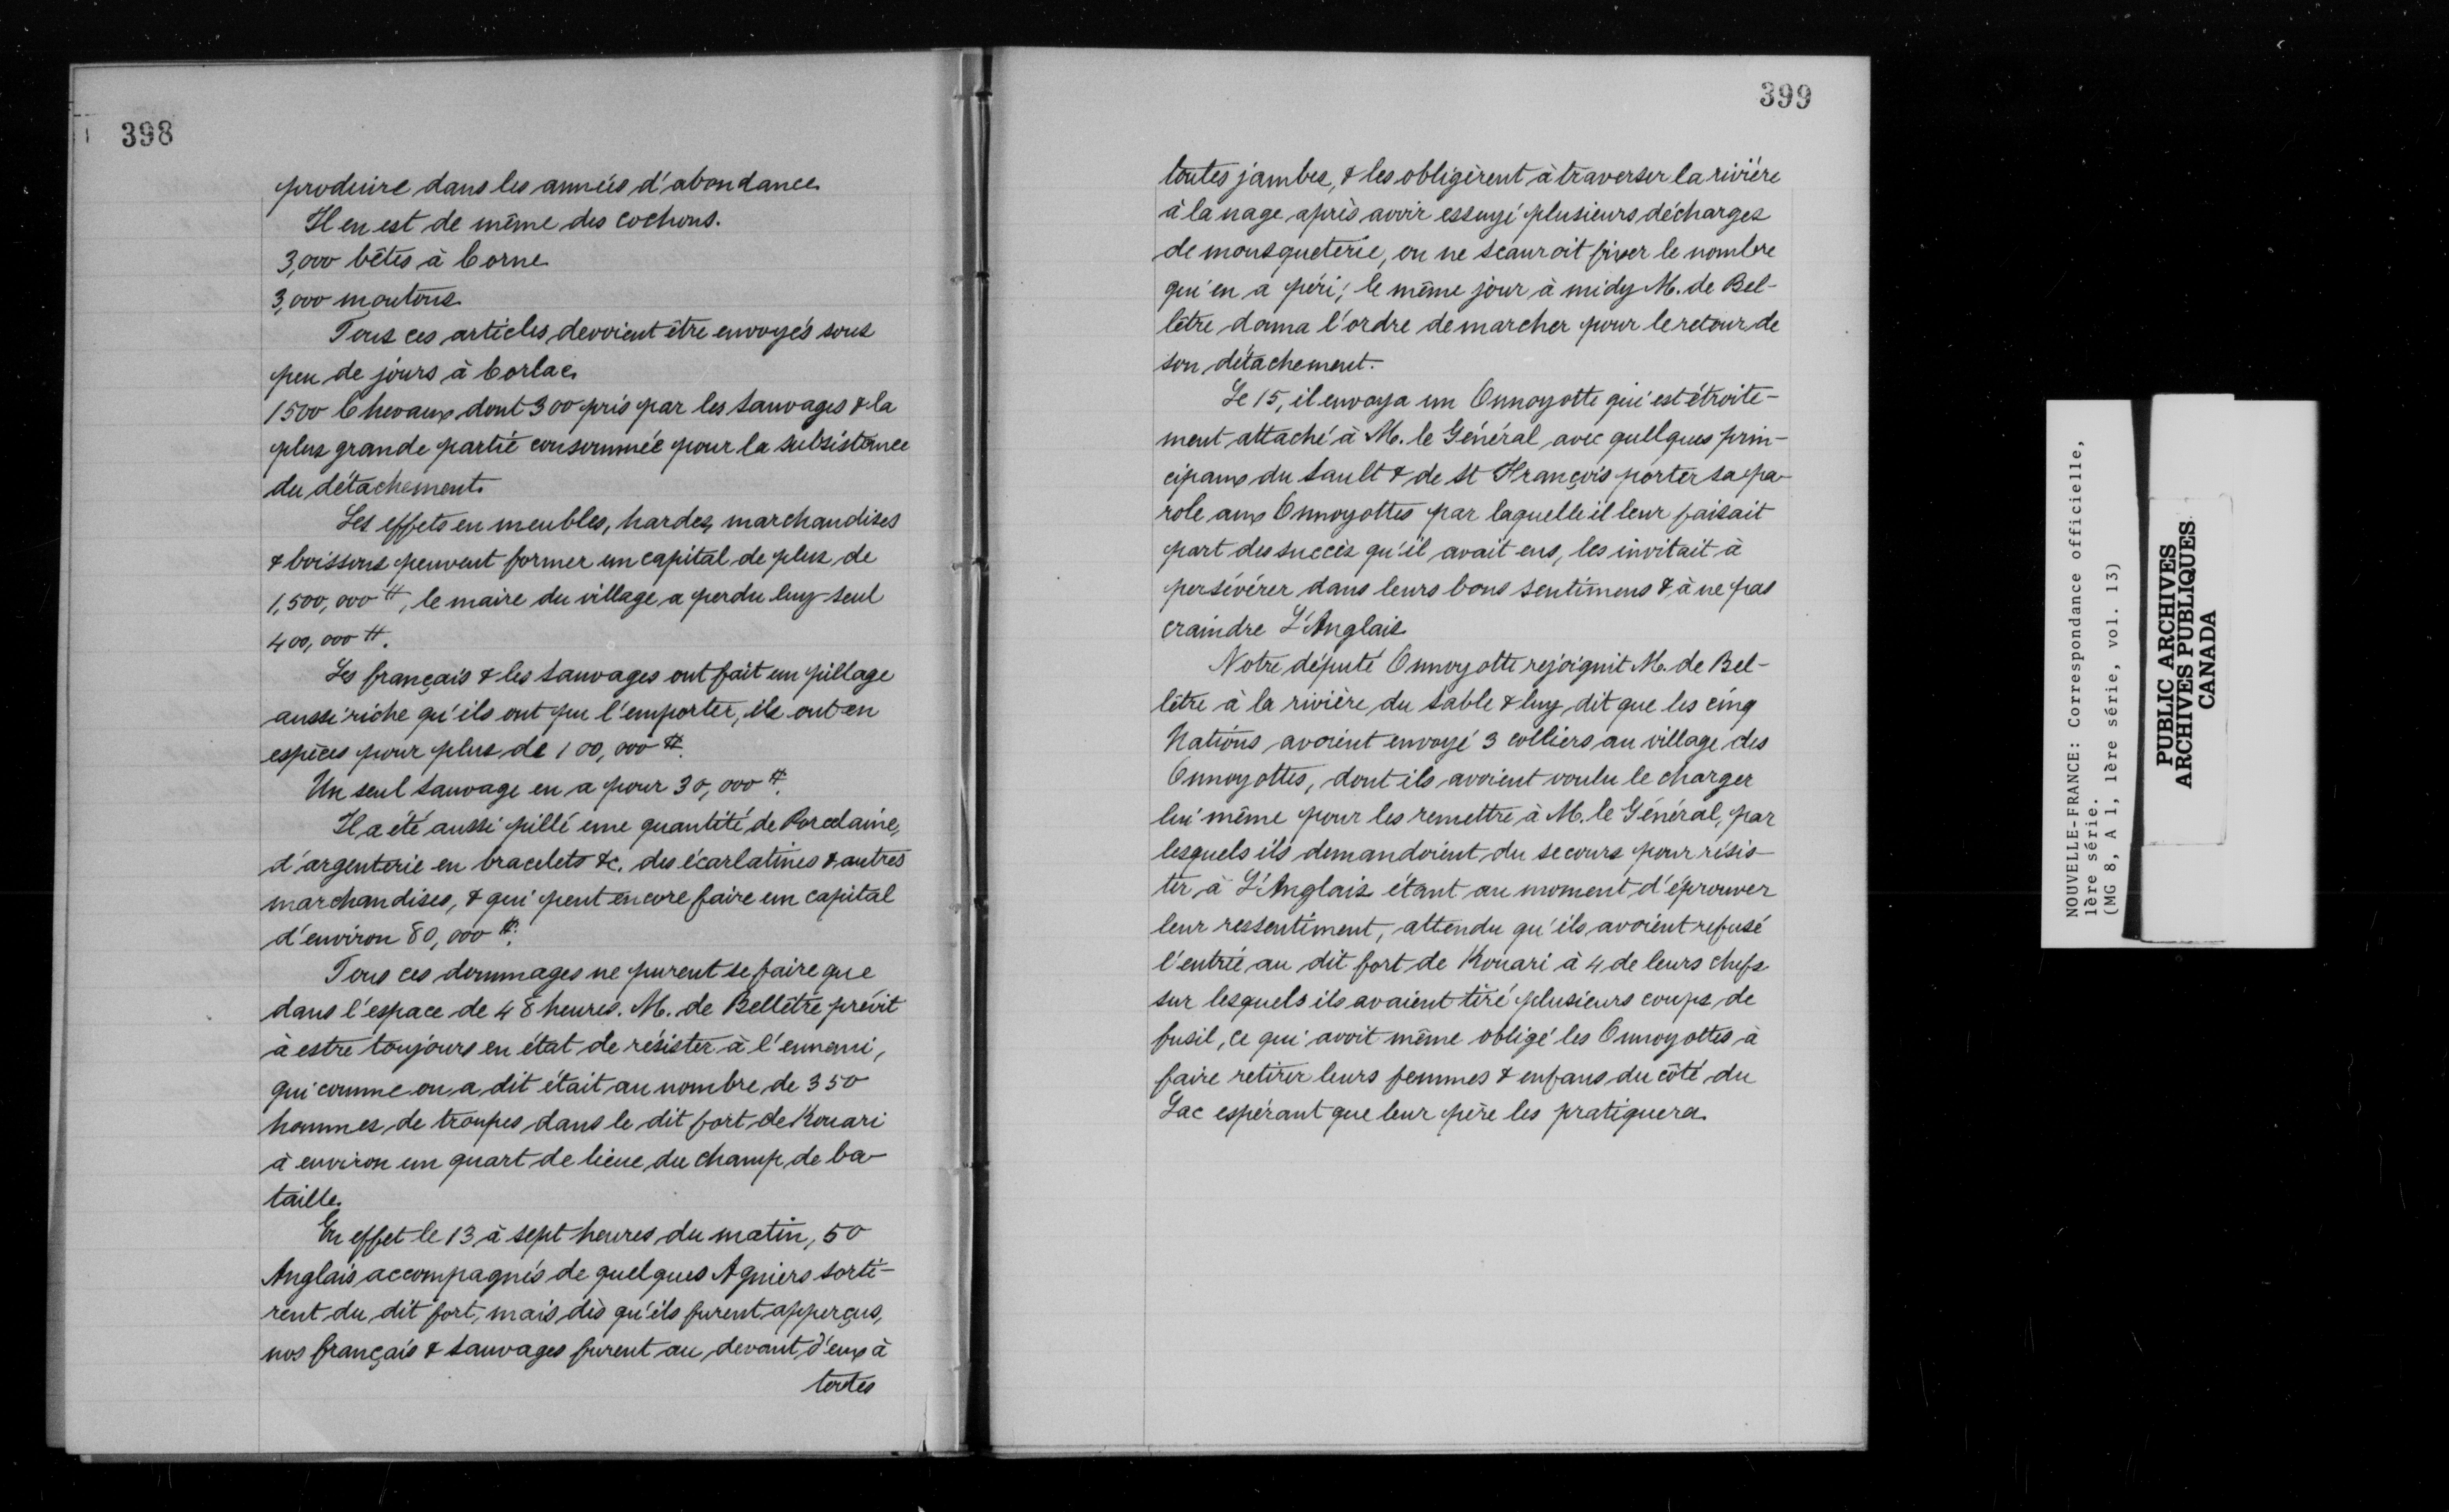 398
produire dans les années d'abondance.
Il en est de même des cochons.
3,000 bêtes à Corne
3,000 moutons
Tous ces articles devoient être envoyés sous
peu de jours à Corlac.
1500 Chevaux dont 300 pris par les sauvages & la
plus grande partie consommée pour la subsistance
du détachement.
Les effets en meubles, hardes, marchandises
& boissons peuvent former un capital de plus de
1,500,000 ₶, le maire du village a perdu luy seul
400,000 ₶.
Les français & les sauvages ont fait un pillage
aussi riche qu'ils ont pu l'emporter, ils ont en
espèces pour plus de 100,000 ₶.
Un seul sauvage en a pour 30,000 ₶.
Il a été aussi pillé une quantité de Porcelaine,
d'argenterie en bracelets &c. des écarlatines & autres
marchandises, & qui peut encore faire un capital
d'environ 80,000 ₶.
Tous ces dommages ne purent se faire que
dans l'espace de 48 heures. M. de Bellêtre prévit
à estre toujours en état de résister à l'ennemi,
qui comme on a dit était au nombre de 350
hommes de troupes dans le dit fort de Kouari
à environ un quart de lieue du champ de ba-
taille.
En effet le 13 à sept heures du matin, 50
Anglais accompagnés de quelques Agniers sorti-
rent du dit fort, mais dès qu'ils furent apperçus,
nos français & sauvages furent au devant d'eux à
toutes
399
toutes jambes, & les obligèrent à traverser la rivière
à la nage après avoir essuyé plusieurs décharges
de mousqueterie, on ne scauroit fixer le nombre
qu'en a péri; le même jour à midy M. de Bel-
lêtre donna l'ordre de marcher pour le retour de
son détachement.
Le 15, il envoya un Onnoyotte qui est étroite-
ment attaché à M. le Général avec quelques prin-
cipaux du Sault & de St François porter sa pa-
role aux Onnoyottes par laquelle il leur faisait
part des succès qu'il avait eus, les invitait à
persévérer dans leurs bons sentimens & à ne pas
craindre L'Anglais
Notre député Onnoyotte rejoignit M. de Bel-
lêtre à la rivière du Sable & luy dit que les cinq
Nations avoient envoyé 3 colliers au village des
Onnoyottes, dont ils avoient voulu le charger
lui même pour les remettre à M. le Général, par
lesquels ils demandoient du secours pour résis-
ter à L'Anglais étant au moment d'éprouver
leur ressentiment, attendu qu'ils avoient refusé
l'entrée au dit fort de Kouari à 4 de leurs chefs
sur lesquels ils avaient tiré plusieurs coups de
fusil, ce qui avoit même obligé les Onnoyottes à
faire retirer leurs femmes & enfans du côté du
Lac espérant que leur père les pratiquera.
NOUVELLE-FRANCE: Correspondance officielle,
1ère série.
(MG 8, A 1, 1ère série, vol. 13)
PUBLIC ARCHIVES
ARCHIVES PUBLIQUES
CANADA